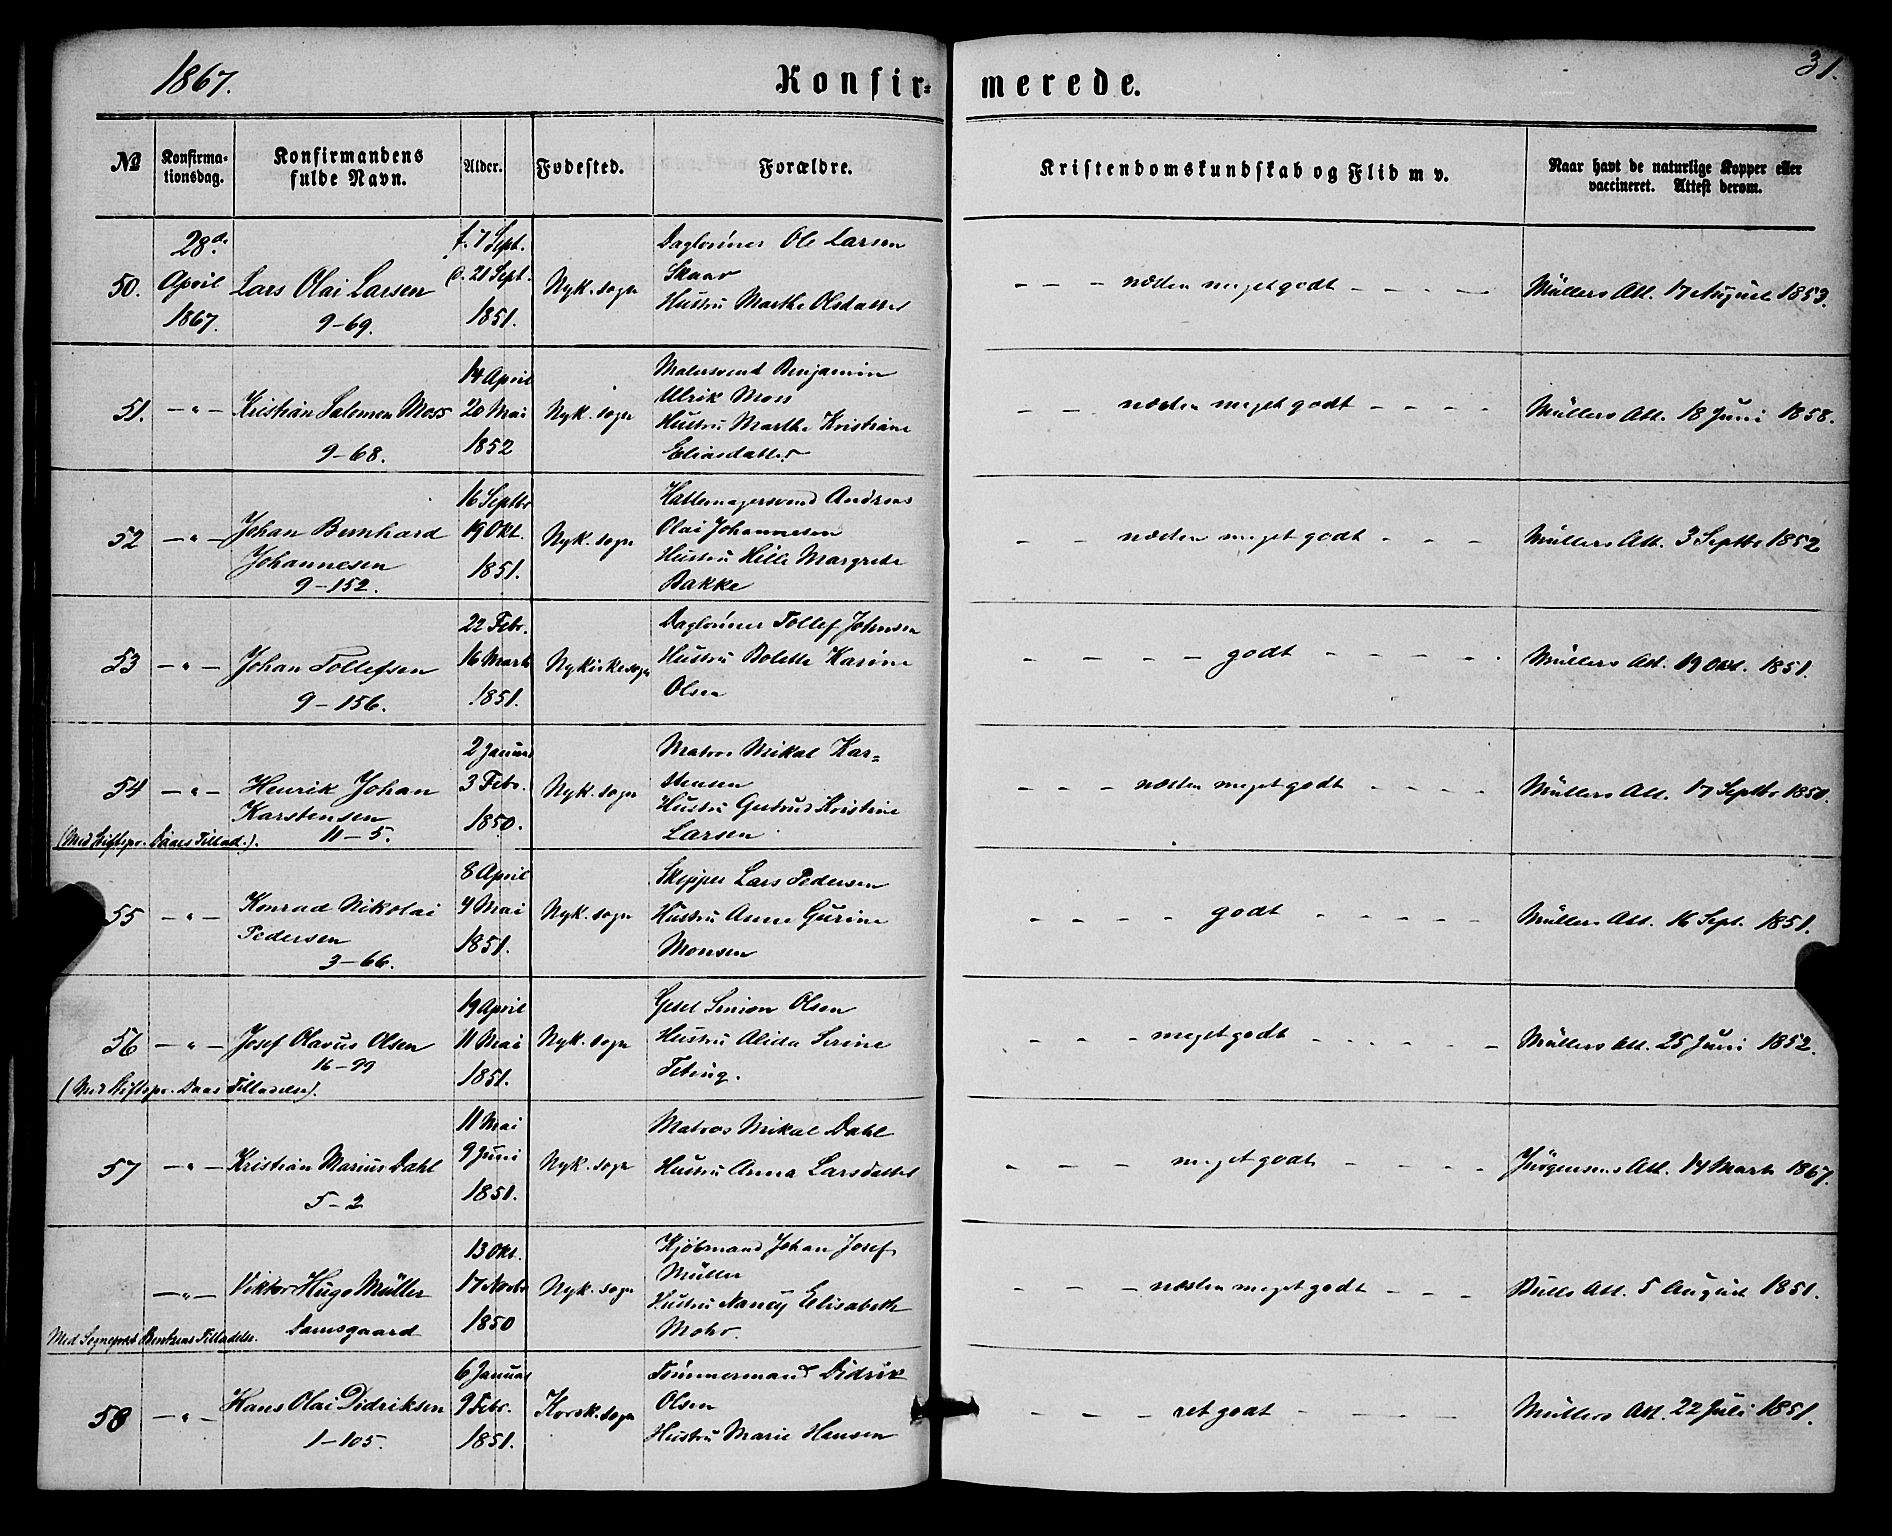 1867.
Konfir-
merede.
31.
№
Konfirma-
tionsdag.
Konfirmandens
fulde Navn.
Alder.
Fødested.
Forældre.
Kristendomskundskab og Flid m v.
Naar havt de naturlige Kopper eller
vaccineret. Attest derom.
50.
28de
April
1867.
Lars Olai Larsen
9-69.
f. 7 Sept.
d. 21 Sept.
1851.
Nyk. sogn
Daglønner Ole Larsen
Skaar
Hustru Marthe Olsdatter
- - - næsten meget godt - - - -
Müllers Att. 17 August 1853.
51.
- " -
Kristian Salomon Moss
9-68.
14 April
20 Mai
1852
Nyk. sogn
Malersvend Benjamin
Ulrik Moss
Hustru Marthe Kristiane
Eliasdatter
- - næsten meget godt - - - -
Müllers Att. 18 Juni 1858.
52
- " -
Johan Bernhard
Johannesen
9-152.
16 Septbr
19 Okt.
1851.
Nyk. sogn
Hattemagersvend Andreas
Olai Johannesen
Hustru Hille Margrete
Bakke
- - næsten meget godt - - -
Müllers Att. 3 Septbr 1852
53
- " -
Johan Tollefsen
9-156.
22 Febr.
16 Marts
1851.
Nykirkesogn
Daglønner Tollef Johnsen
Hustru Bolette Karine
Olsen
- - - - godt - - - - -
Müllers Att. 19 Okt. 1851.
54
- " -
Henrik Johan
Karstensen
11-5.
(Med Stiftspr. Daaes Tillad.).
2 Januar
3 Febr.
1850.
Nyk. sogn
Matros Mikal Kar=
stensen
Hustru Gertrud Kristine
Larsen
- - - næsten meget godt - - - -
Müllers Att. 17 Septbr 1850.
55
- " -
Konrad Nikolai
Pedersen
3-66.
8 April
4 Mai
1851.
Nyk. sogn
Skipper Lars Pedersen
Hustru Anne Gurine
Monsen
- - - - godt - - - - -
Müllers Att. 16 Sept. 1851.
56
- " -
Josef Olavus Olsen
16-99
(Med Stiftspr. Daaes Tilladelse).
19 April
11 Mai
1851.
Nyk. sogn
Gesel Simon Olsen
Hustru Alida Serine
Feting.
- - - meget godt - - - - -
Müllers Att. 25 Juni 1852.
57
- " -
Kristian Marius Dahl
5-2
11 Mai
9 Juni
1851.
Nyk. sogn
Matros Mikal Dahl
Hustru Anna Larsdatter
- - - meget godt - - - -
Jürgensens Att. 14 Marts 1867.
- " -
Viktor Hugo Müller
Damsgaard
Med Sognepræst Bentzens Tilladelse.
13 Okt.
17 Novbr
1850
Nyk. sogn
Kjøbmand Johan Josef
Müller
Hustru Nancy Elisabeth
Mohr.
- - næsten meget godt - - -
Bulls Att. 5 August 1851.
58
- " -
Hans Olai Didriksen
1-105.
6 Januar
9 Febr.
1851.
Korsk. sogn
Tømmermand Didrik
Olsen
Hustru Marie Hansen
- - - ret godt - - - -
Müllers Att. 22 Juli 1851.